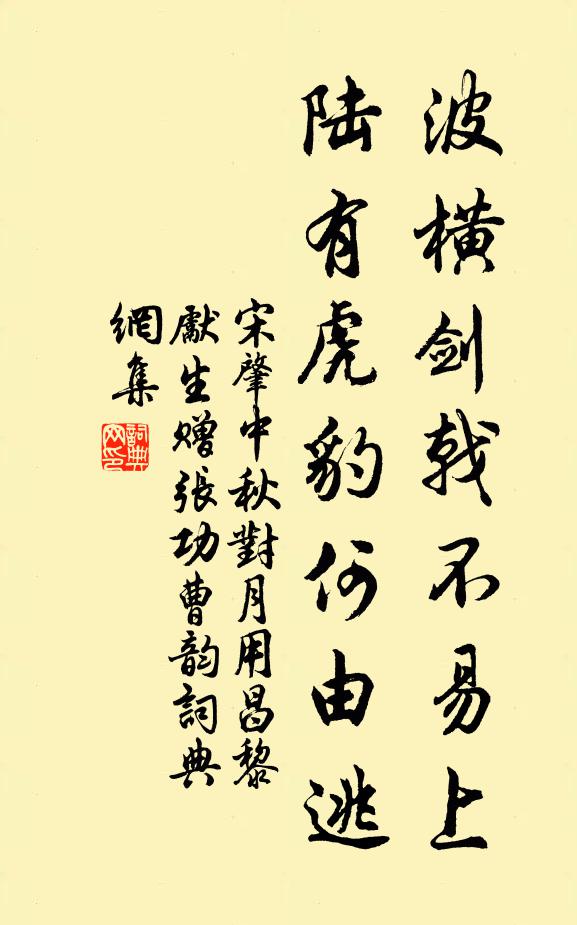 波橫剑戟不易上
陆有虎豹何由逃
宋肇中秋對月用昌黎
獻生贈張功曹韵詞典
網集
詞典
网印